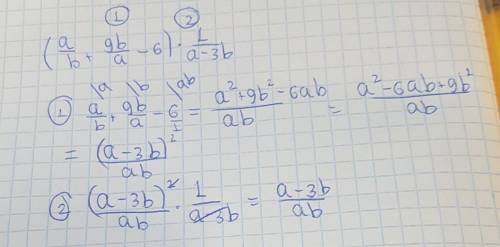 ① ②
(a/b + 9b/a - 6) · 1/(a-3b)
\a \b \ab
① a/b + 9b/a - 6/1 = (a² + 9b² - 6ab)/ab = (a² - 6ab + 9b²)/ab
= (a-3b)²/ab
② (a-3b)²/ab · 1/(a-3b) = (a-3b)/ab